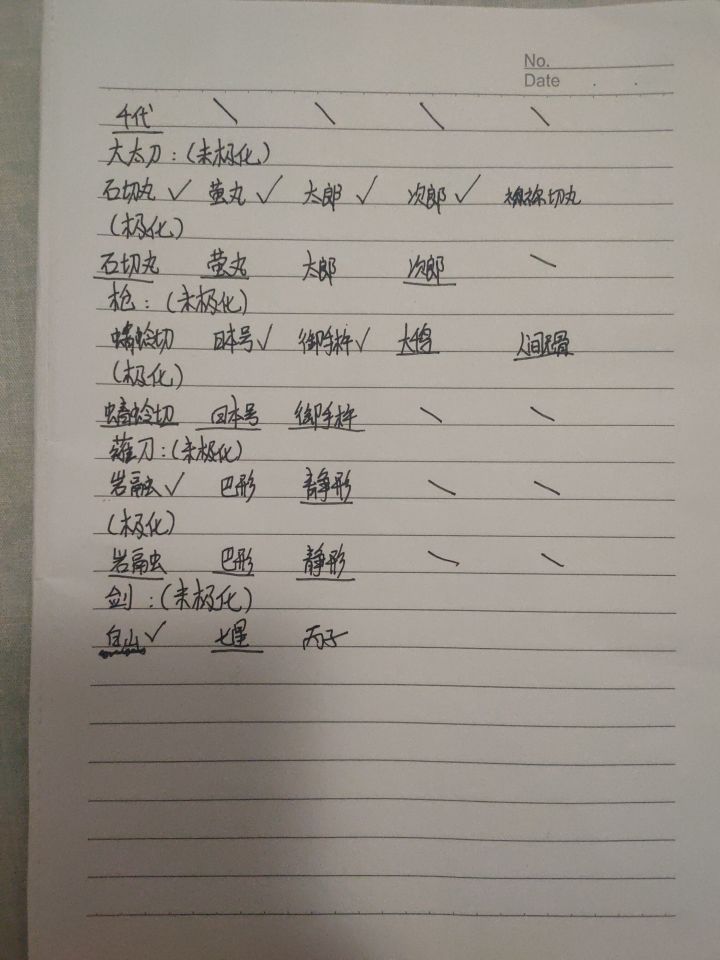 No.
Date
千代 \ \ \ \
大太刀：(未极化)
石切丸 ✓ 萤丸 ✓ 太郎 ✓ 次郎 ✓ 祢祢切丸
(极化)
石切丸 萤丸 太郎 次郎 \
枪：(未极化)
蜻蛉切 日本号 ✓ 御手杵 ✓ 大千鸟 人间无骨
(极化)
蜻蛉切 日本号 御手杵 \ \
薙刀：(未极化)
岩融 ✓ 巴形 静形 \ \
(极化)
岩融 巴形 静形 \ \
剑：(未极化)
白山 ✓ 七星 丙子